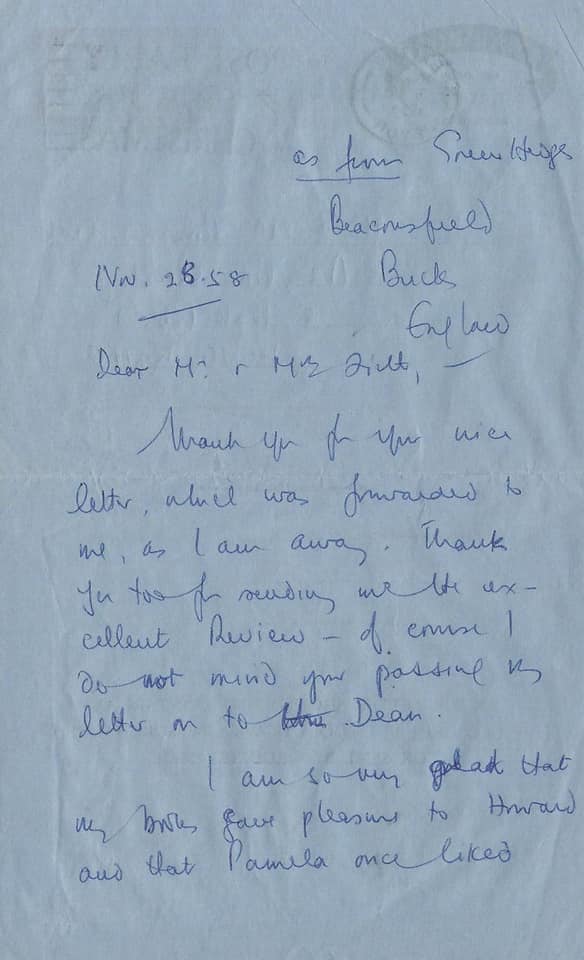 as from Green Hedges
Beaconsfield
Bucks
England
Nov. 28.58
Dear Mr. & Mrs
Thank you for your nice
letter, which was forwarded to
me, as I am away. Thank
you too for sending me the ex-
cellent Review – of course I
do not mind your passing my
letter on to Dean.
I am so very glad that
my books gave pleasure to Howard
and that Pamela once liked